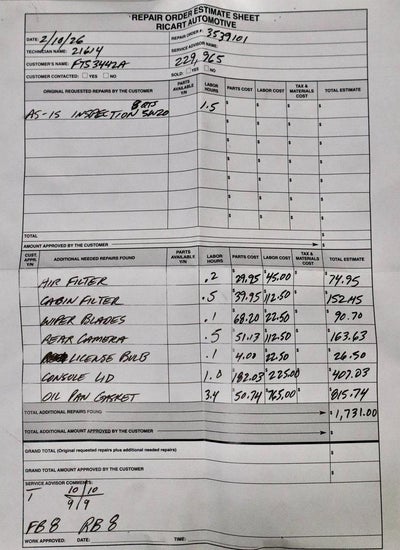 REPAIR ORDER ESTIMATE SHEET
RICART AUTOMOTIVE
DATE: 2/10/26 REPAIR ORDER #: 3539101
TECHNICIAN NAME: 21614 SERVICE ADVISOR NAME:
CUSTOMER'S NAME: FTS3442A 229,965
CUSTOMER CONTACTED: YES NO SOLD: YES NO
ORIGINAL REQUESTED REPAIRS BY THE CUSTOMER PARTS AVAILABLE Y/N LABOR HOURS PARTS COST LABOR COST TAX & MATERIALS COST TOTAL ESTIMATE
AS-IS INSPECTION 8 QTS 5W20 1.5 $ $ $ $
TOTAL $
AMOUNT APPROVED BY THE CUSTOMER $
CUST. APPR. Y/N ADDITIONAL NEEDED REPAIRS FOUND PARTS AVAILABLE Y/N LABOR HOURS PARTS COST LABOR COST TAX & MATERIALS COST TOTAL ESTIMATE
AIR FILTER .2 $29.95 $45.00 $ $74.95
CABIN FILTER .5 $39.95 $112.50 $ $152.45
WIPER BLADES .1 $68.20 $22.50 $ $90.70
REAR CAMERA .5 $51.13 $112.50 $ $163.63
LICENSE BULB .1 $4.00 $22.50 $ $26.50
CONSOLE LID 1.0 $182.03 $225.00 $ $407.03
OIL PAN GASKET 3.4 $50.74 $765.00 $ $815.74
TOTAL ADDITIONAL REPAIRS FOUND $1,731.00
TOTAL ADDITIONAL AMOUNT APPROVED BY THE CUSTOMER $
GRAND TOTAL (Original requested repairs plus additional needed repairs) $
GRAND TOTAL AMOUNT APPROVED BY THE CUSTOMER $
SERVICE ADVISOR COMMENTS:
1 10 | 10
9 | 9
FB 8 RB 8
WORK APPROVED: DATE: TIME: